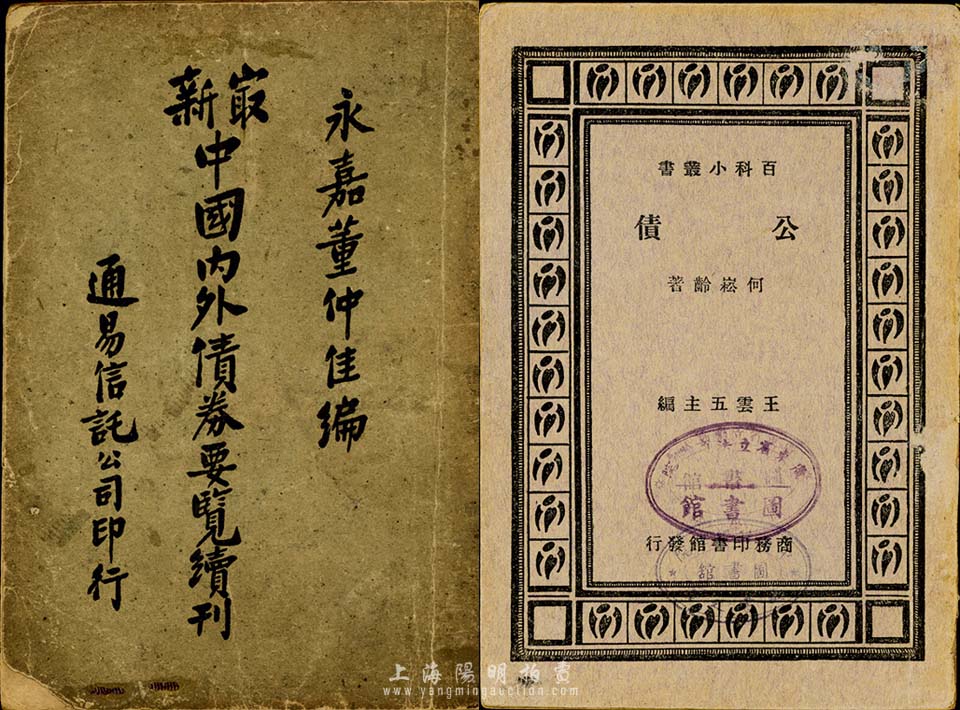 永嘉董仲佳編
最新中國內外債券要覽續刊
通易信託公司印行
百科小叢書
公債
何崧齡著
王雲五主編
圖書館
商務印書館發行
圖書館
上海陽明拍賣
www.yangmingauction.com